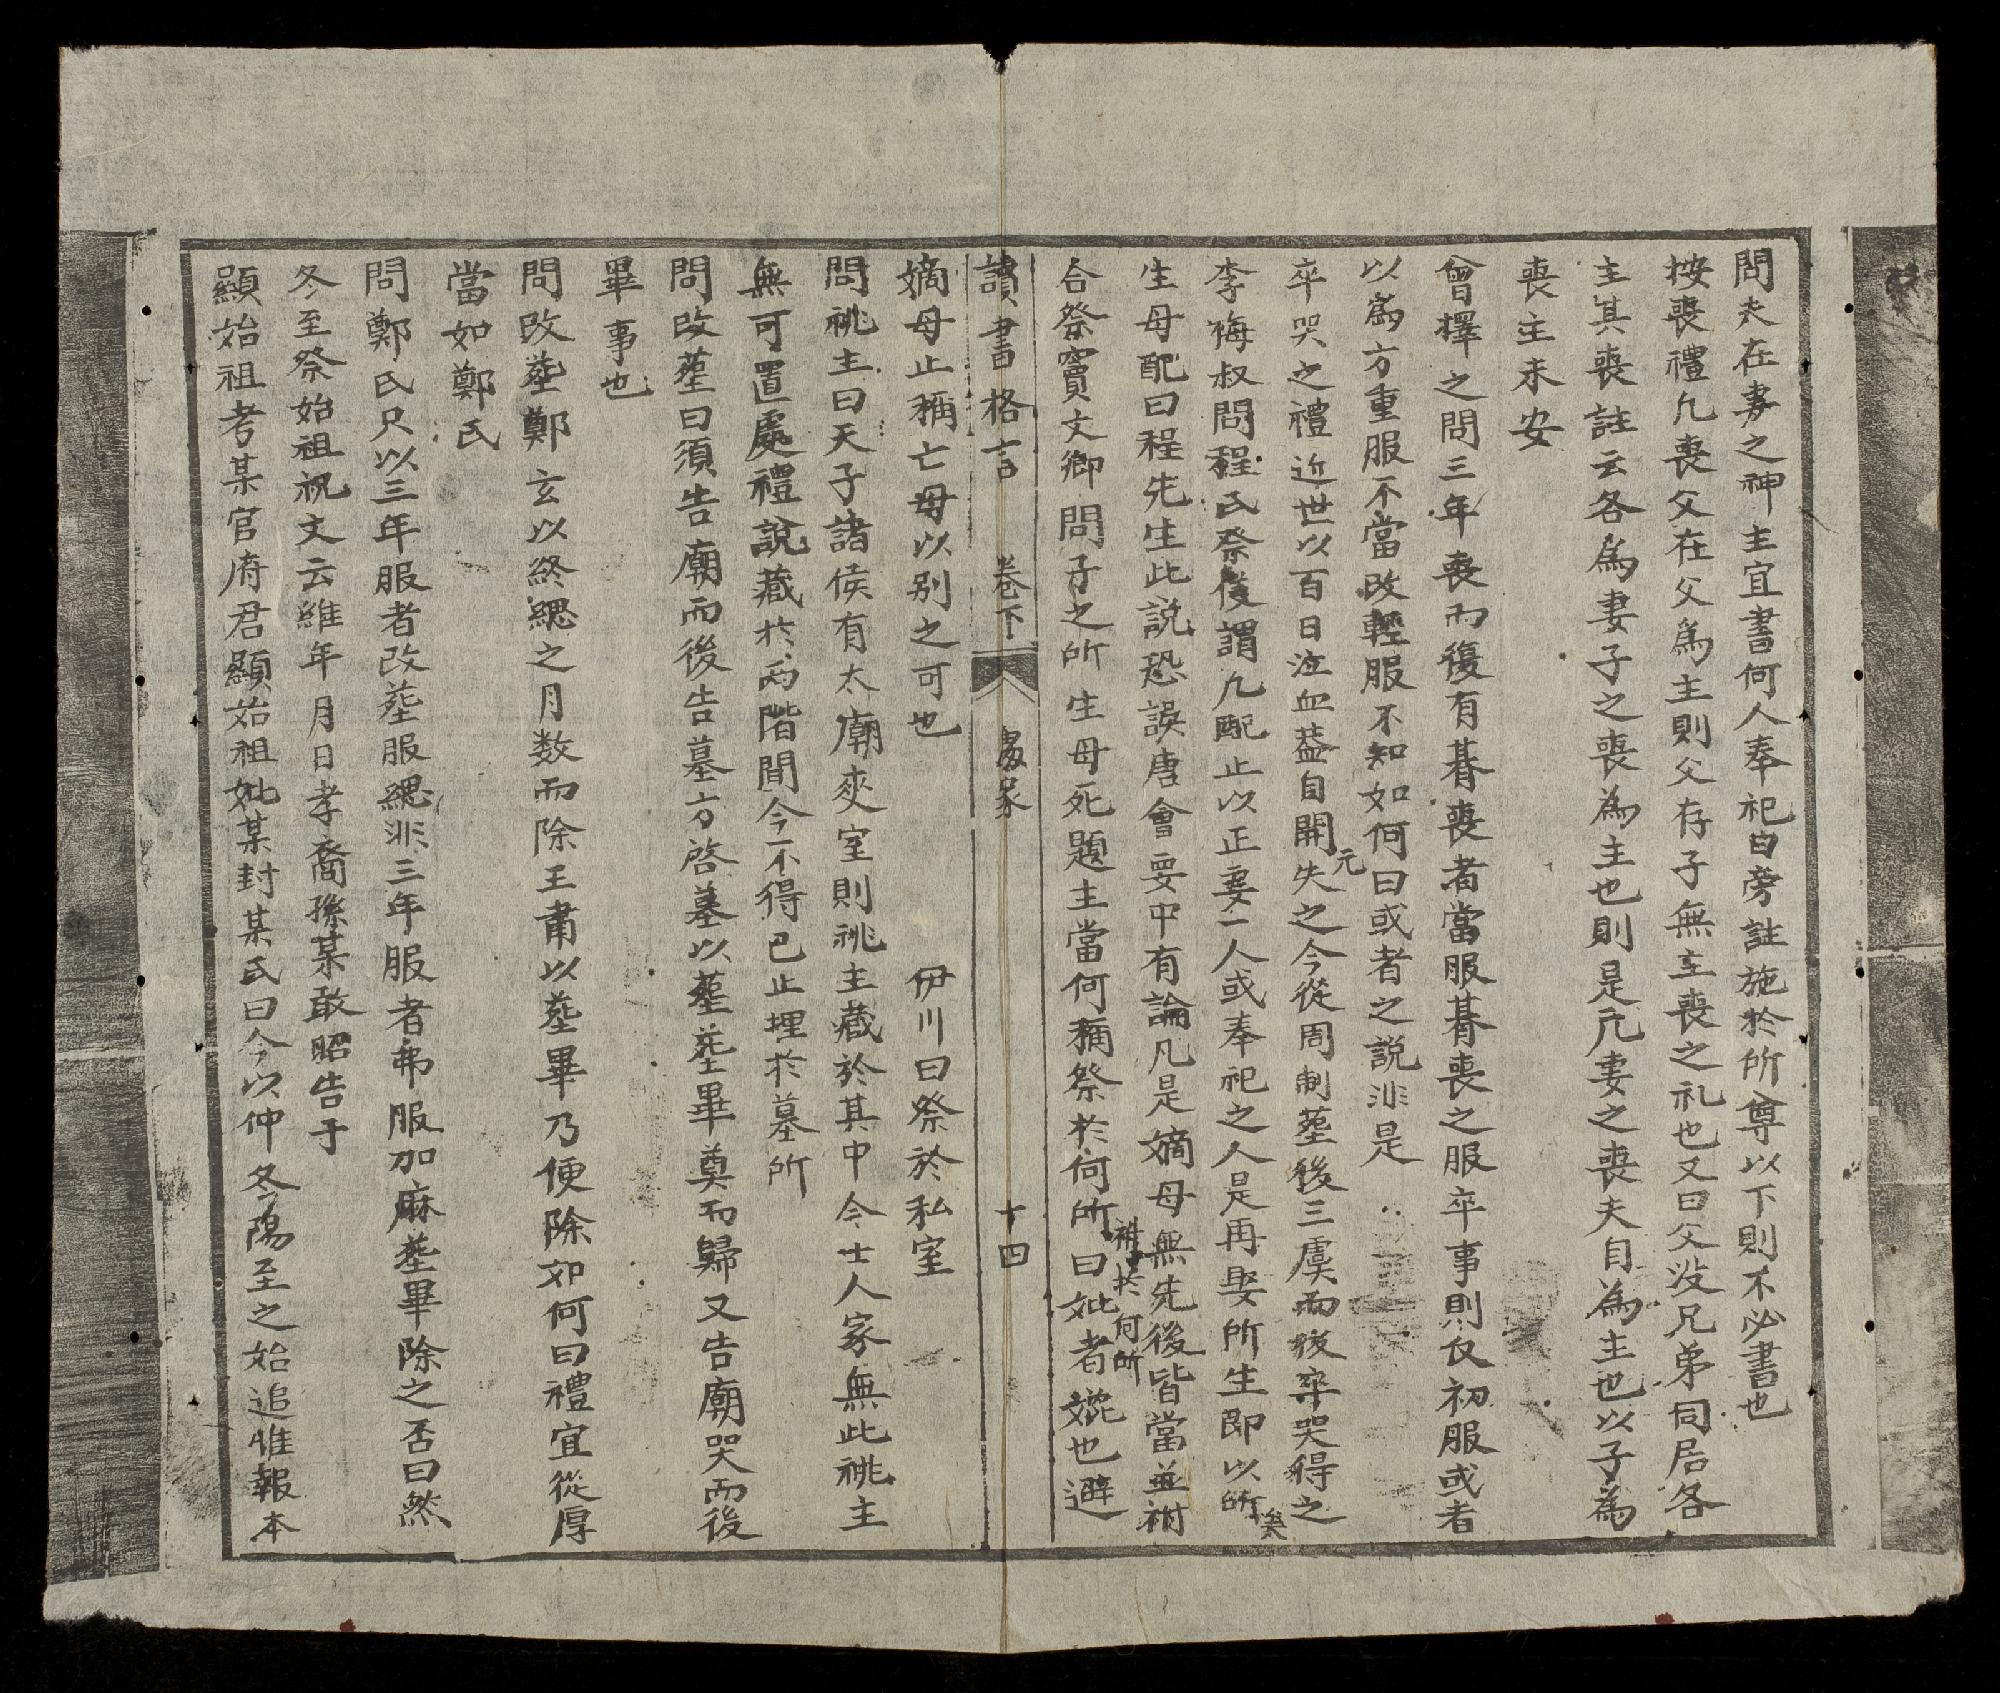 問夫在妻之神主宜書何人奉祀曰旁註施於所尊以下則不必書也
按喪禮凡喪父在父爲主則父存子無主喪之礼也又曰父沒兄弟同居各
主其喪註云各為妻子之喪為主也則是凢妻之喪夫自為主也以子為
喪主未安
曾擇之問三年喪而復有朞喪者當服朞喪之服卒事則仅初服或者
以爲方重服不當改輕服不知如何曰或者之説非是
卒哭之禮近世以百日泣血盖自開元失之今從周制塟後三虞而後卒哭得之矣
李梅叔問程氏祭儀謂凢配止以正妻一人或奉祀之人是再娶所生即以所
生母配曰程先生此説恐誤唐會要中有論凡是嫡母無先後皆當並祔
合祭竇文卿問子之所生母死題主當何稱祭於何所祔於何所曰妣者媲也避
讀書格言 卷下 處家 十四
嫡母止稱亡母以别之可也 伊川曰祭於私室
問祧主曰天子諸侯有太廟夾室則祧主藏於其中今士人家無此祧主
無可置處禮說藏於兩階間今不得已止埋於墓所
問改塟曰須告廟而後告墓方啓墓以塟塟畢奠而歸又告廟哭而後
畢事也
問改塟鄭玄以終緦之月数而除王肅以塟畢乃便除如何曰禮宜從厚
當如鄭氏
問鄭氏只以三年服者改塟服緦非三年服者弗服加麻塟畢除之否曰然
冬至祭始祖祝文云維年月日孝裔孫某敢昭告于
顯始祖考某官府君顯始祖妣某封某氏曰今以仲冬陽至之始追惟報本